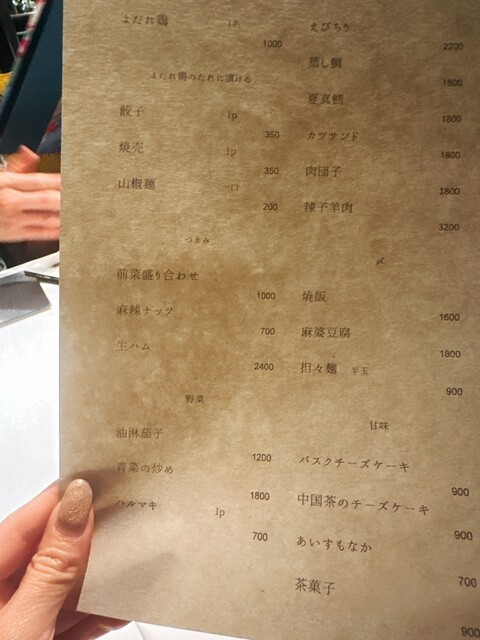 よだれ鶏 1P
1000
よだれ鶏のたれに漬ける
餃子 1p
350
焼売 1p
350
山椒麺 一口
200
つまみ
前菜盛り合わせ
1000
麻辣ナッツ
700
生ハム
2400
野菜
油淋茄子
1200
青菜の炒め
1800
ハルマキ 1p
700
えびちり
2200
蒸し鯛
1800
1800
カツサンド
1800
肉団子
1800
辣子羊肉
3200
〆
焼飯
1600
麻婆豆腐
1800
担々麺 半玉
900
甘味
バスクチーズケーキ
900
中国茶のチーズケーキ
900
あいすもなか
700
茶菓子
900